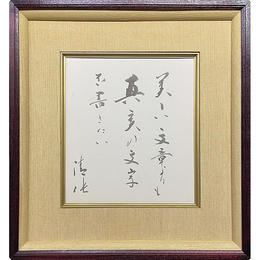 美しい文章よりも
真実の文字
を書きたい
清張